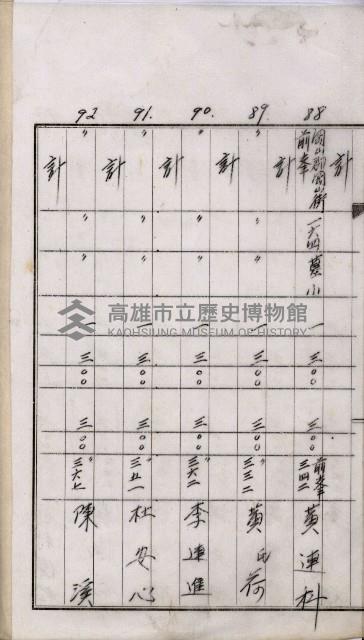 88 計 岡山郡岡山街前峯 一六四 墓 小 一 三〇〇 三〇〇 前峯三四二 黃連科
89. 計 〃 〃 〃 一 三〇〇 三〇〇 〃三三二 黃氏荷
90. 計 〃 〃 〃 一 三〇〇 三〇〇 〃三六二 李連進
91. 計 〃 〃 〃 一 三〇〇 三〇〇 〃三五一 杜安心
92 計 〃 〃 〃 一 三〇〇 三〇〇 〃三六七 陳溪
高雄市立歷史博物館
KAOHSIUNG MUSEUM OF HISTORY